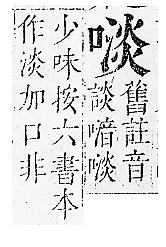 啖
舊註音
談喑啖
少味按六書本
作淡加口非